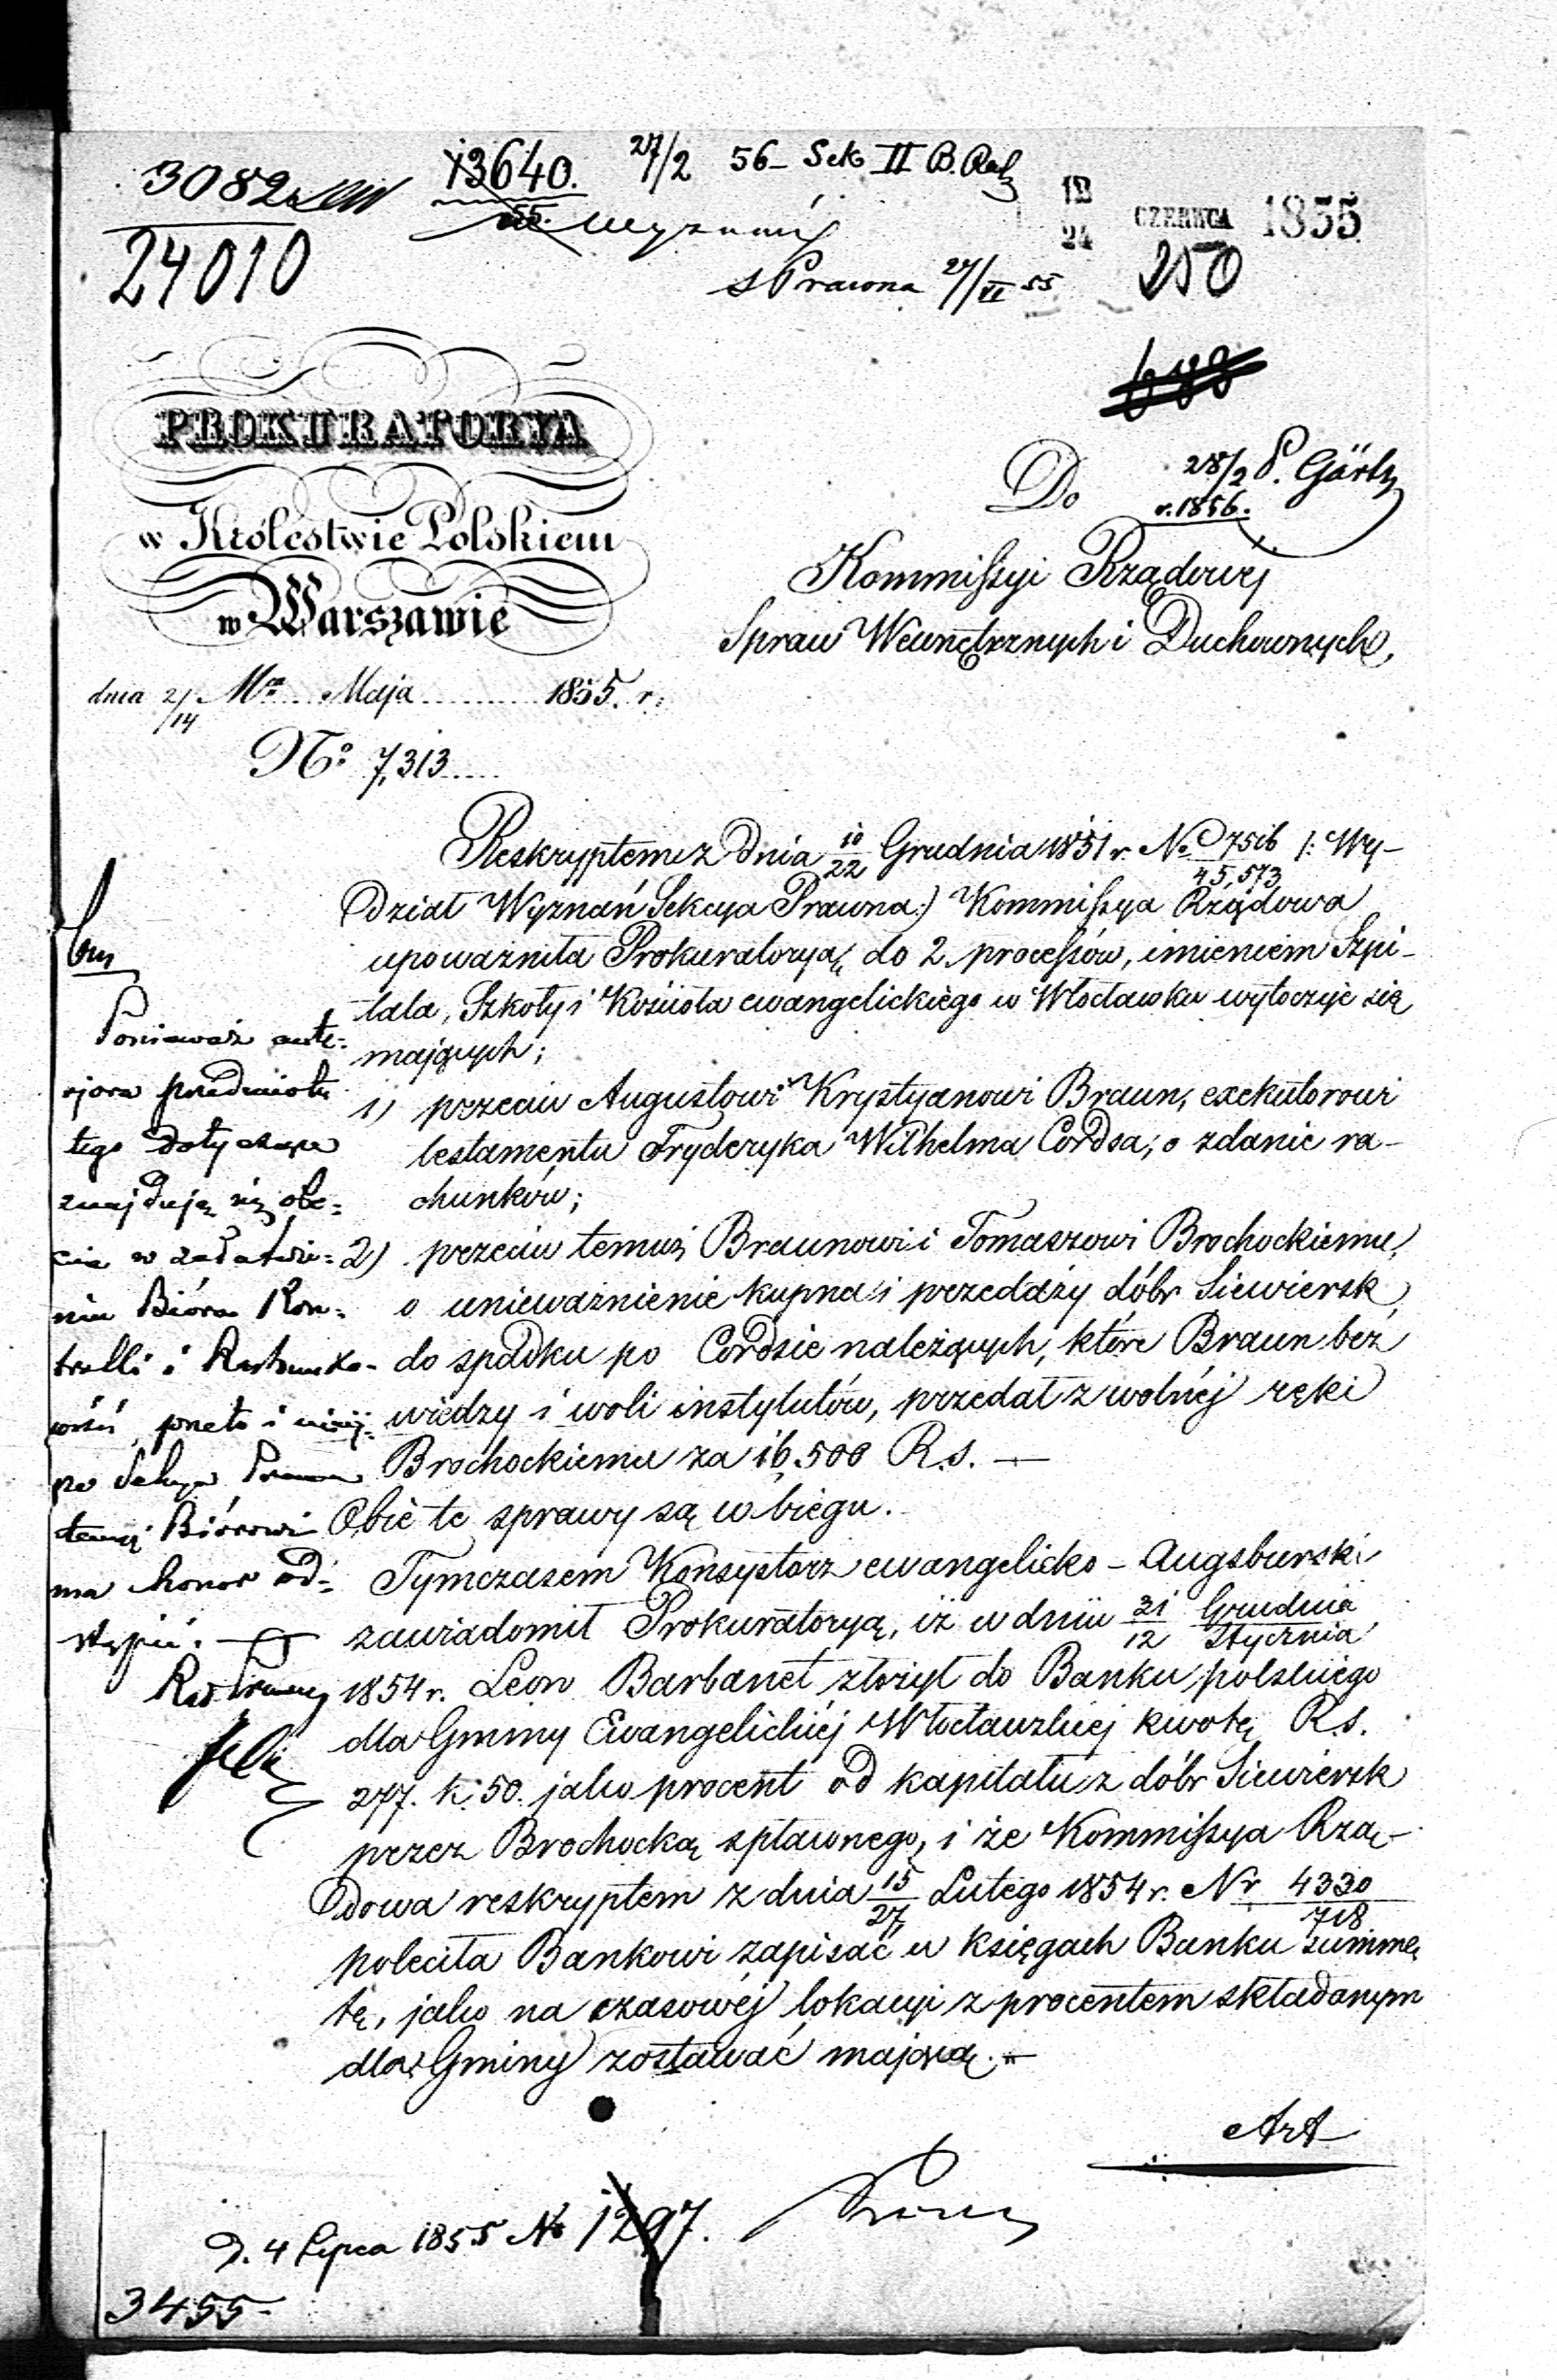 3082
13640.
55.
27/2 56 – Sek II B. Rach
24010
Wyznań
12
24 CZERWCA 1855
S Prawna 27/VI 55
250
PROKURATORYA
w Królestwie Polskiem
w Warszawie
dnia 2/14 Mca Maja 1855. r.
No 7,313
Do
28/2 P. Gärtz
r. 1856.
Kommissyi Rządowéj
Spraw Wewnętrznych i Duchownych,
Reskryptem z dnia 10/22 Grudnia 1851 r. No 7516/45,573 /: Wy-
dział Wyznań Sekcya Prawna:) Kommissya Rządowa
upoważniła Prokuratoryą, do 2. processów, imieniem Szpi-
tala, Szkoły i Kościoła ewangelickiego w Włocławku wytoczyć się
mających;
1) przeciw Augustowi Krystyanowi Braun, exekutorowi
testamentu Fryderyka Wilhelma Cordsa, o zdanie ra-
chunków;
2) przeciw temuż Braunowi i Tomaszowi Brochockiemu,
o unieważnienie kupna i przedaży dóbr Siewiersk
do spadku po Cordsie należących, które Braun bez
wiedzy i woli instytutów, przedał z wolnéj ręki
Brochockiemu za 16,500 R.s. —
Obie te sprawy są w biegu.
Tymczasem Konsystorz ewangelicko – Augsburski
zawiadomił Prokuratoryą, iż w dniu 31/12 Grudnia/Stycznia
1854 r. Leon Barbanel złożył do Banku polskiego
dla Gminy Ewangelickiéj Włocławskiej kwotę Rs.
277. k. 50. jako procent od kapitału z dóbr Siewiersk
przez Brochocką spławnego, i że Kommissya Rzą-
dowa reskryptem z dnia 15/27 Lutego 1854 r. Nr 4330/718
poleciła Bankowi zapisać w księgach Banku summę
tę, jako na czasowéj lokacyi z procentem składanym
dla Gminy zostawać mającą. —
Art
Ponieważ ante-
rjora przedmiotu
tego dotyczące
znajdują się obe-
cnie w załatwie-
niu Bióra Kon-
trolli i Rachunko-
wości, przeto i niniej-
sze Sekcya Prawna
temuż Biórowi
ma honor od-
stąpić. —
D. 4 Lipca 1855 No 1297.
3455